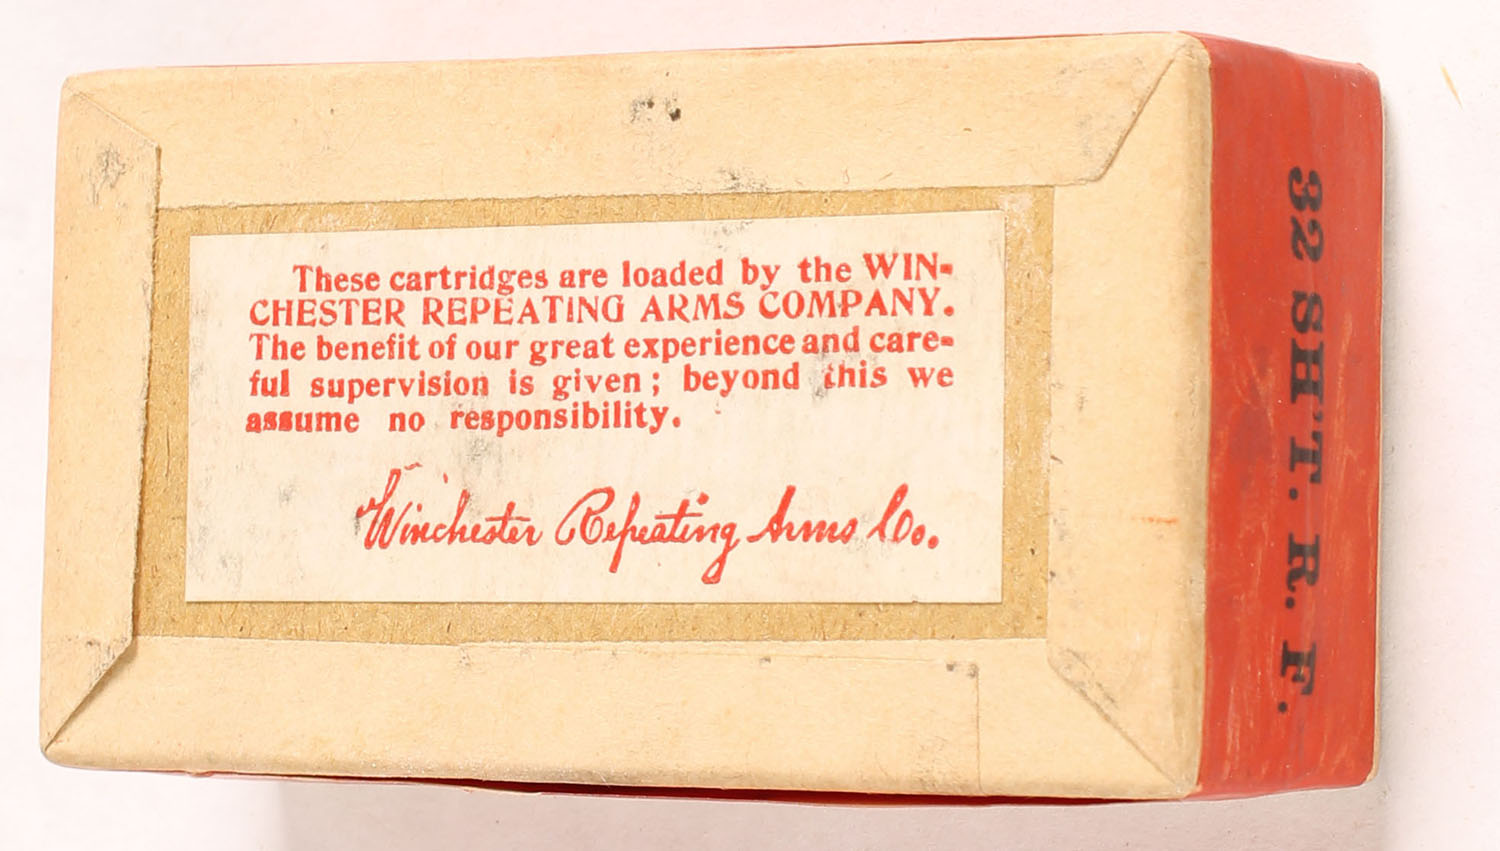 These cartridges are loaded by the WIN-
CHESTER REPEATING ARMS COMPANY.
The benefit of our great experience and care-
ful supervision is given; beyond this we
assume no responsibility.
Winchester Repeating Arms Co.
32 SHT. R. F.